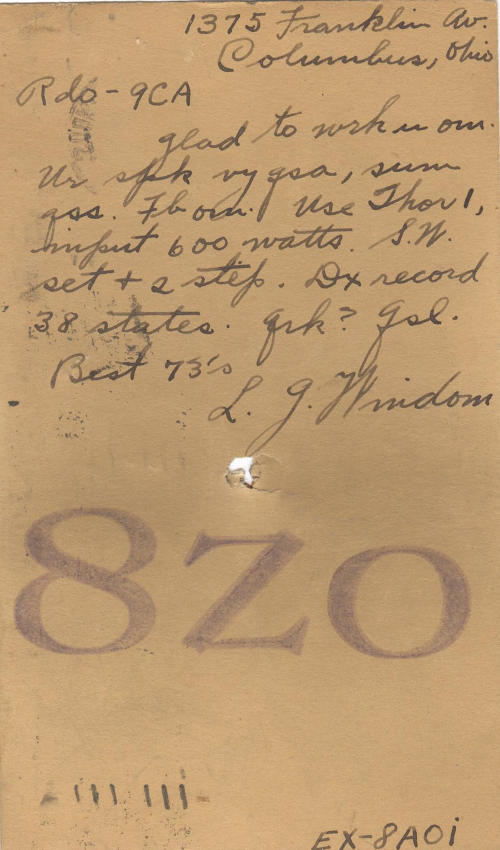 1375 Franklin Av.
Columbus, Ohio
Rdo - 9CA
glad to wrk u om.
Ur spk vy qsa, sum
qss. Fb om. Use Thor 1,
input 600 watts. S.W.
set + 2 step. Dx record
38 states. Qrk? Qsl.
Best 73's
L. G. Windom
8ZO
EX-8AOi